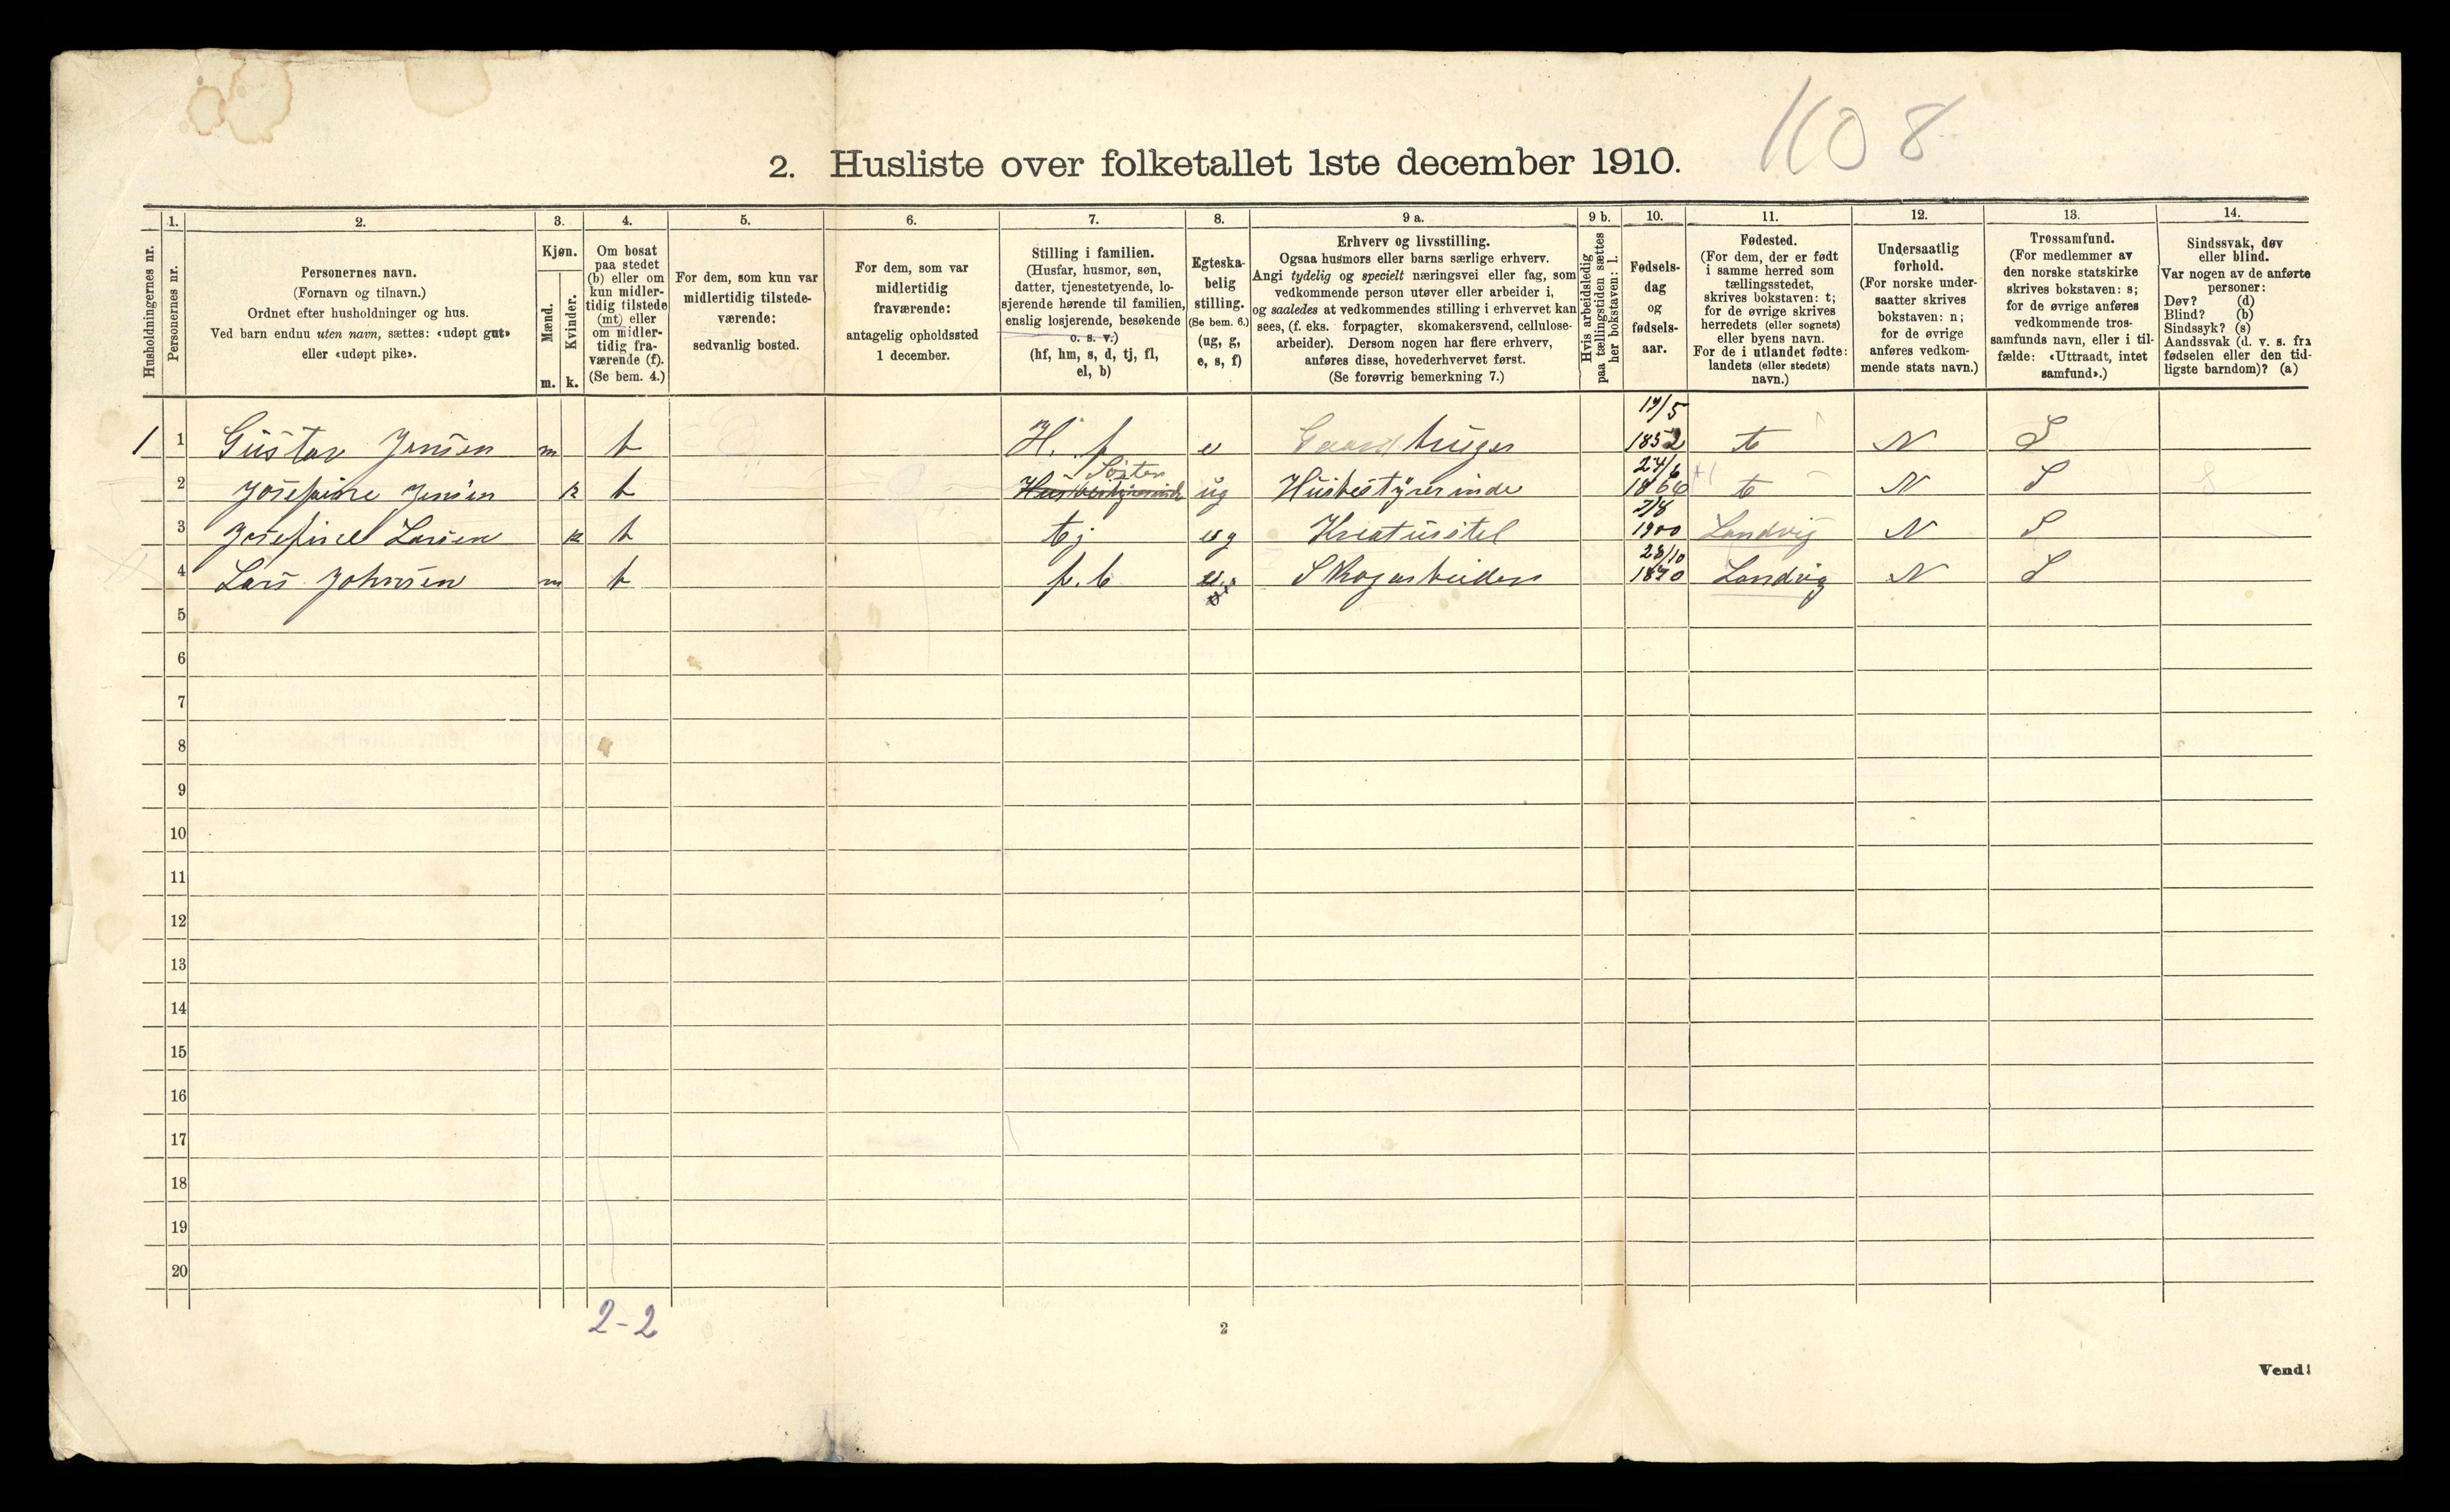 1108
2. Husliste over folketallet 1ste december 1910.
Husholdningernes nr.
1.
Personernes nr.
2.
Personernes navn.
(Fornavn og tilnavn.)
Ordnet efter husholdninger og hus.
Ved barn endnu uten navn, sættes: «udøpt gut»
eller «udøpt pike».
3.
Kjøn.
Mænd.
Kvinder.
m. k.
4.
Om bosat
paa stedet
(b) eller om
kun midler-
tidig tilstede
(mt) eller
om midler-
tidig fra-
værende (f).
(Se bem. 4.)
5.
For dem, som kun var
midlertidig tilstede-
værende:
sedvanlig bosted.
6.
For dem, som var
midlertidig
fraværende:
antagelig opholdssted
1 december.
7.
Stilling i familien.
(Husfar, husmor, søn,
datter, tjenestetyende, lo-
sjerende hørende til familien,
enslig losjerende, besøkende
o. s. v.)
(hf, hm, s, d, tj, fl,
el, b)
8.
Egteska-
belig
stilling.
(Se bem. 6.)
(ug, g,
e, s, f)
9 a.
Erhverv og livsstilling.
Ogsaa husmors eller barns særlige erhverv.
Angi tydelig og specielt næringsvei eller fag, som
vedkommende person utøver eller arbeider i,
og saaledes at vedkommendes stilling i erhvervet kan
sees, (f. eks. forpagter, skomakersvend, cellulose-
arbeider). Dersom nogen har flere erhverv,
anføres disse, hovederhvervet først.
(Se forøvrig bemerkning 7.)
9 b.
Hvis arbeidsledig
paa tællingstiden sættes
her bokstaven: l.
10.
Fødsels-
dag
og
fødsels-
aar.
11.
Fødested.
(For dem, der er født
i samme herred som
tællingsstedet,
skrives bokstaven: t;
for de øvrige skrives
herredets (eller sognets)
eller byens navn.
For de i utlandet fødte:
landets (eller stedets)
navn.)
12.
Undersaatlig
forhold.
(For norske under-
saatter skrives
bokstaven: n;
for de øvrige
anføres vedkom-
mende stats navn.)
13.
Trossamfund.
(For medlemmer av
den norske statskirke
skrives bokstaven: s;
for de øvrige anføres
vedkommende tros-
samfunds navn, eller i til-
fælde: «Uttraadt, intet
samfund».)
14.
Sindssvak, døv
eller blind.
Var nogen av de anførte
personer:
Døv? (d)
Blind? (b)
Sindssyk? (s)
Aandssvak (d. v. s. fra
fødselen eller den tid-
ligste barndom)? (a)
17/5
1 1 Gustav Jensen m b H. f e Gaardbruger 1852 t N S
Søster 24/6
2 Josefine Jensen k b Husbestyrerinde ug Husbestyrerinde 1866 t N S
7/8
3 Josefine Larsen k b tj ug Kreaturstel 1900 Landvig N S
28/10
4 Lars Johnsen m b f. l Skogarbeider 1870 Landvig N S
5
6
7
8
9
10
11
12
13
14
15
16
17
18
19
20
2-2
2
Vend!